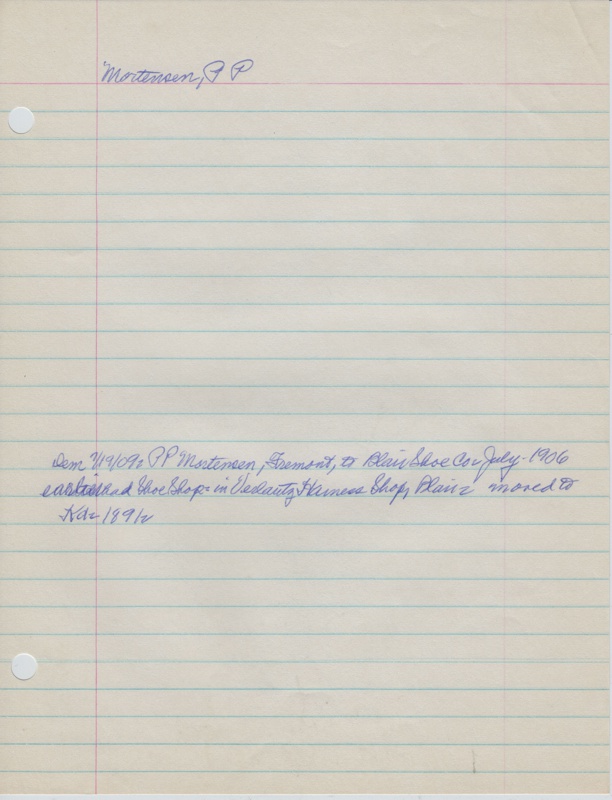 Mortensen, P P
Dem 7/19/09 - P P Mortensen, Fremont, to Blair Shoe Co - July - 1906
earlier had Shoe Shop - in Harness Shop, Blair - moved to
1891 -